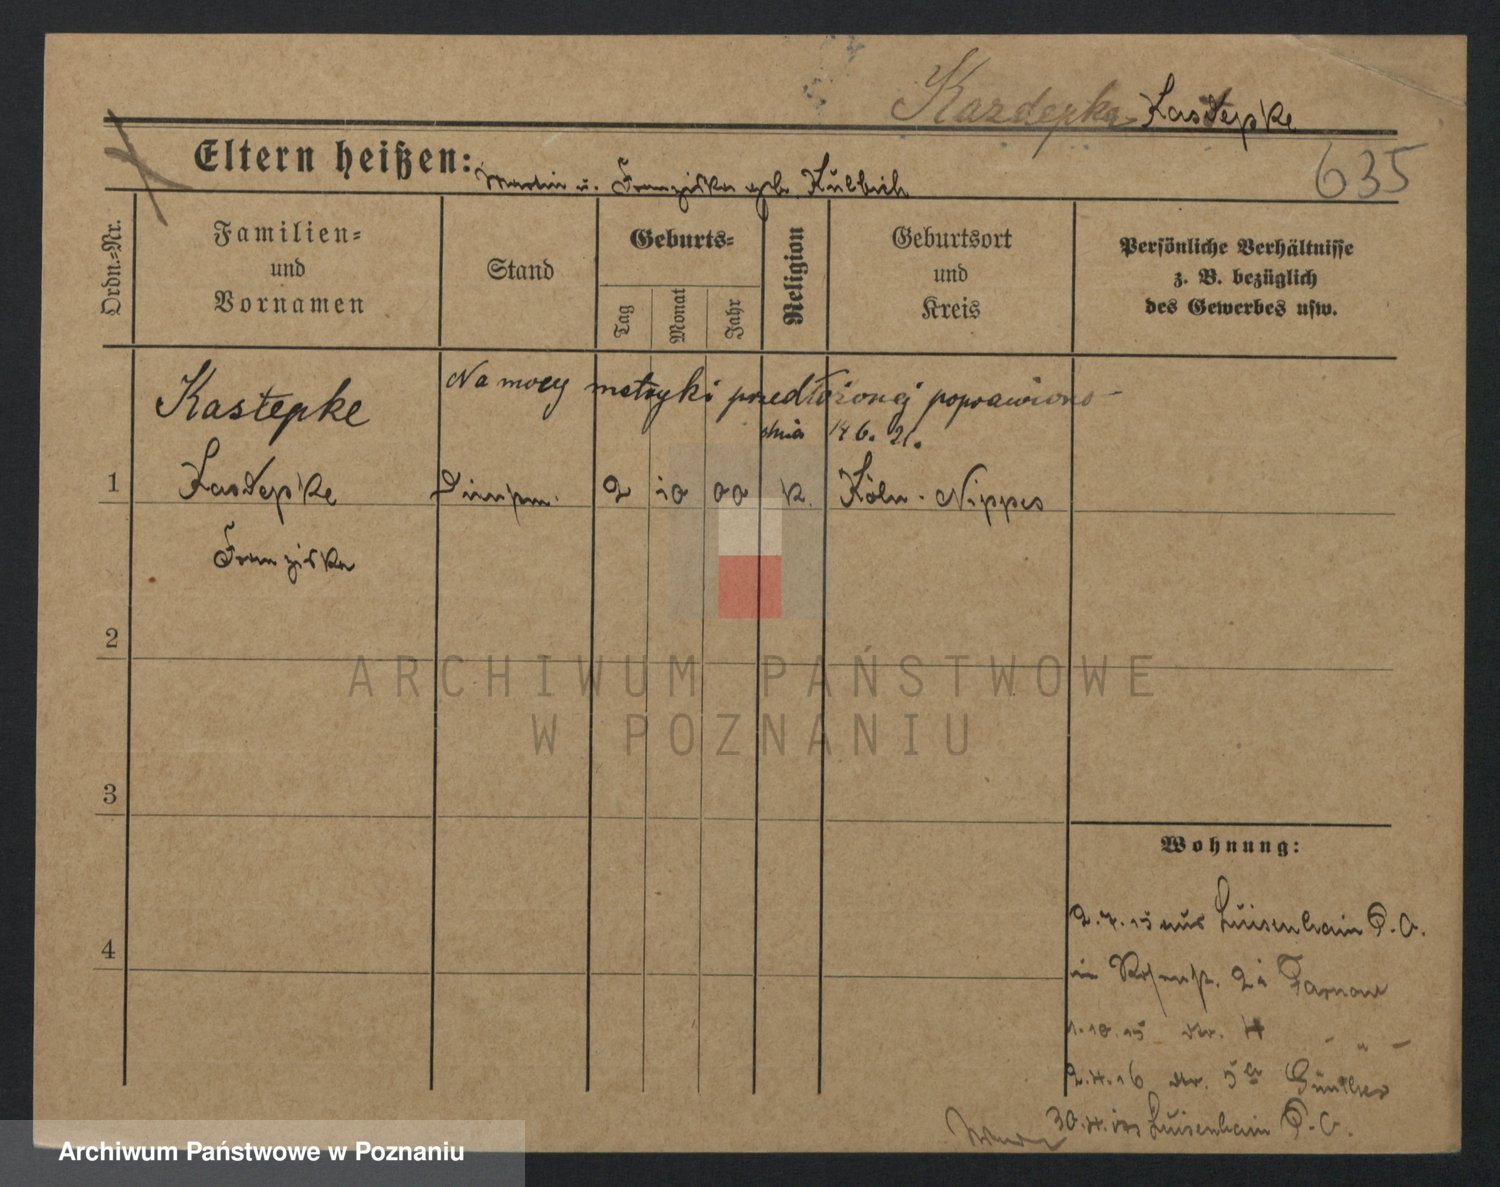 Kazdepka Kastepke
635
Eltern heißen: Martin u. Franziska geb. Kulbich
Ordn.-Nr.
Familien-
und
Vornamen
Stand
Geburts-
Tag
Monat
Jahr
Religion
Geburtsort
und
Kreis
Persönliche Verhältnisse
z. B. bezüglich
des Gewerbes usw.
Kastepke
Na mocy metryki przedłożonej poprawiono
dnia 14 6. 21.
1
Kastepke
2 10 00 k. Köln - Nippes
Franziska
2
3
4
Wohnung:
2.7.15 aus Luisenhain P.O.
in 2 i Tarnow
1.10.15 4 - " -
2.4.16 Günther
30.4. Luisenhain P.O.
ARCHIWUM PAŃSTWOWE
W POZNANIU
Archiwum Państwowe w Poznaniu